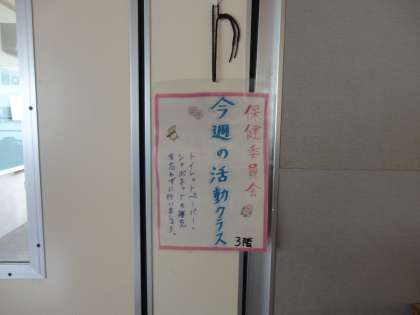 保健委員会
今週の活動クラス
3階
トイレットペーパー、
シャボネットの補充
を忘れずに行いましょう。